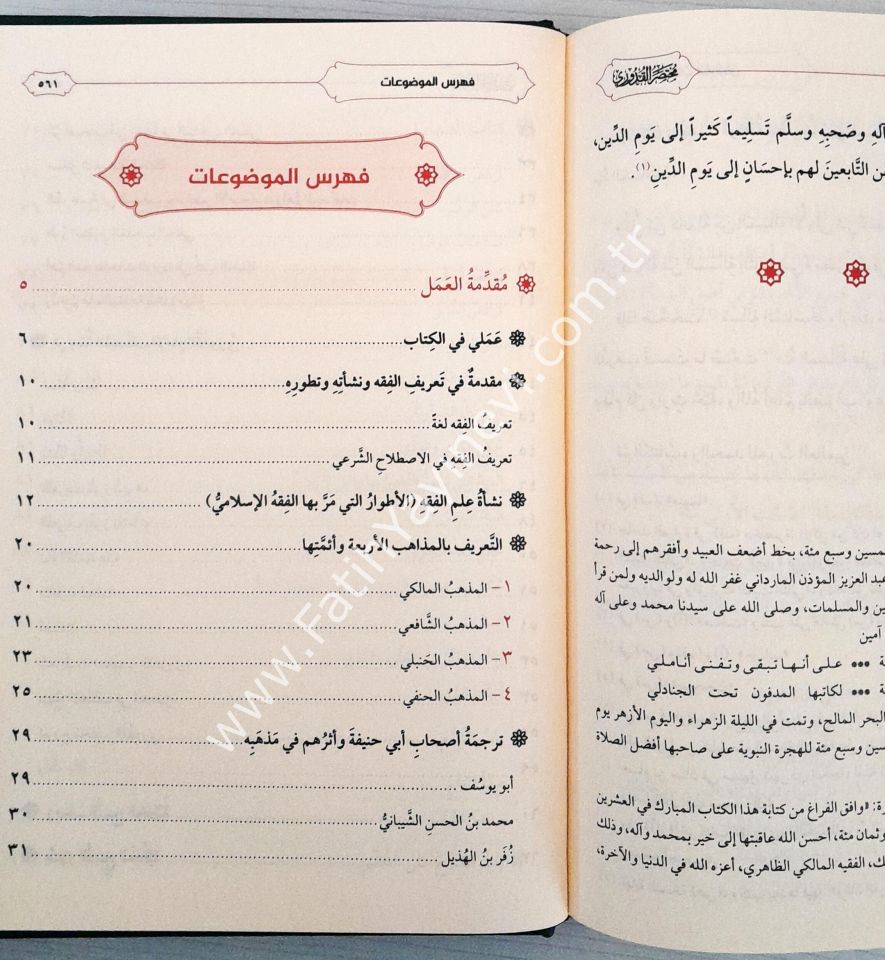 مختصر القدوري
آلهِ وصَحبِهِ وسلَّم تَسلِيماً كَثيراً إلى يَومِ الدِّين،
التَّابعينَ لهم بإحسَانٍ إلى يَومِ الدِّينِ(١).
مسين وسبع مئة، بخط أضعف العبيد وأفقرهم إلى رحمة
عبد العزيز المؤذن المارداني غفر الله له ولوالديه ولمن قرأ
ين والمسلمات، وصلى الله على سيدنا محمد وعلى آله
آمين
ة ••• على أنها تبقى وتفنى أناملي
ة ••• لكاتبها المدفون تحت الجنادلي
البحر المالح، وتمت في الليلة الزهراء واليوم الأزهر يوم
سين وسبع مئة للهجرة النبوية على صاحبها أفضل الصلاة
رة: «وافق الفراغ من كتابة هذا الكتاب المبارك في العشرين
وثمان مئة، أحسن الله عاقبتها إلى خير بمحمد وآله، وذلك
ك، الفقيه المالكي الظاهري، أعزه الله في الدنيا والآخرة،
فهرس الموضوعات
٥٦١
فهرس الموضوعات
مُقدِّمةُ العَمَل ٥
عَمَلي في الكِتاب ٦
مقدمةٌ في تَعريفِ الفِقه ونشأتِهِ وتطورِهِ ١٠
تعريفُ الفِقه لغةً ١٠
تعريفُ الفِقه في الاصطلاحِ الشَّرعي ١١
نشأةُ عِلمِ الفِقه (الأطوارُ التي مَرَّ بها الفِقهُ الإسلاميُّ) ١٢
التَّعريف بالمذاهب الأربعة وأئمَّتِها ٢٠
١- المذهبُ المالكي ٢٠
٢- المذهبُ الشَّافعي ٢١
٣- المذهبُ الحَنبلي ٢٣
٤- المذهبُ الحنفي ٢٥
ترجمَةُ أصحابِ أبي حنيفةَ وأثرُهم في مَذهَبِه ٢٩
أبو يوسُف ٢٩
محمد بنُ الحسنِ الشَّيبانيُّ ٣٠
زُفَر بنُ الهُذيل ٣١
www.FatihYayinevi.com.tr